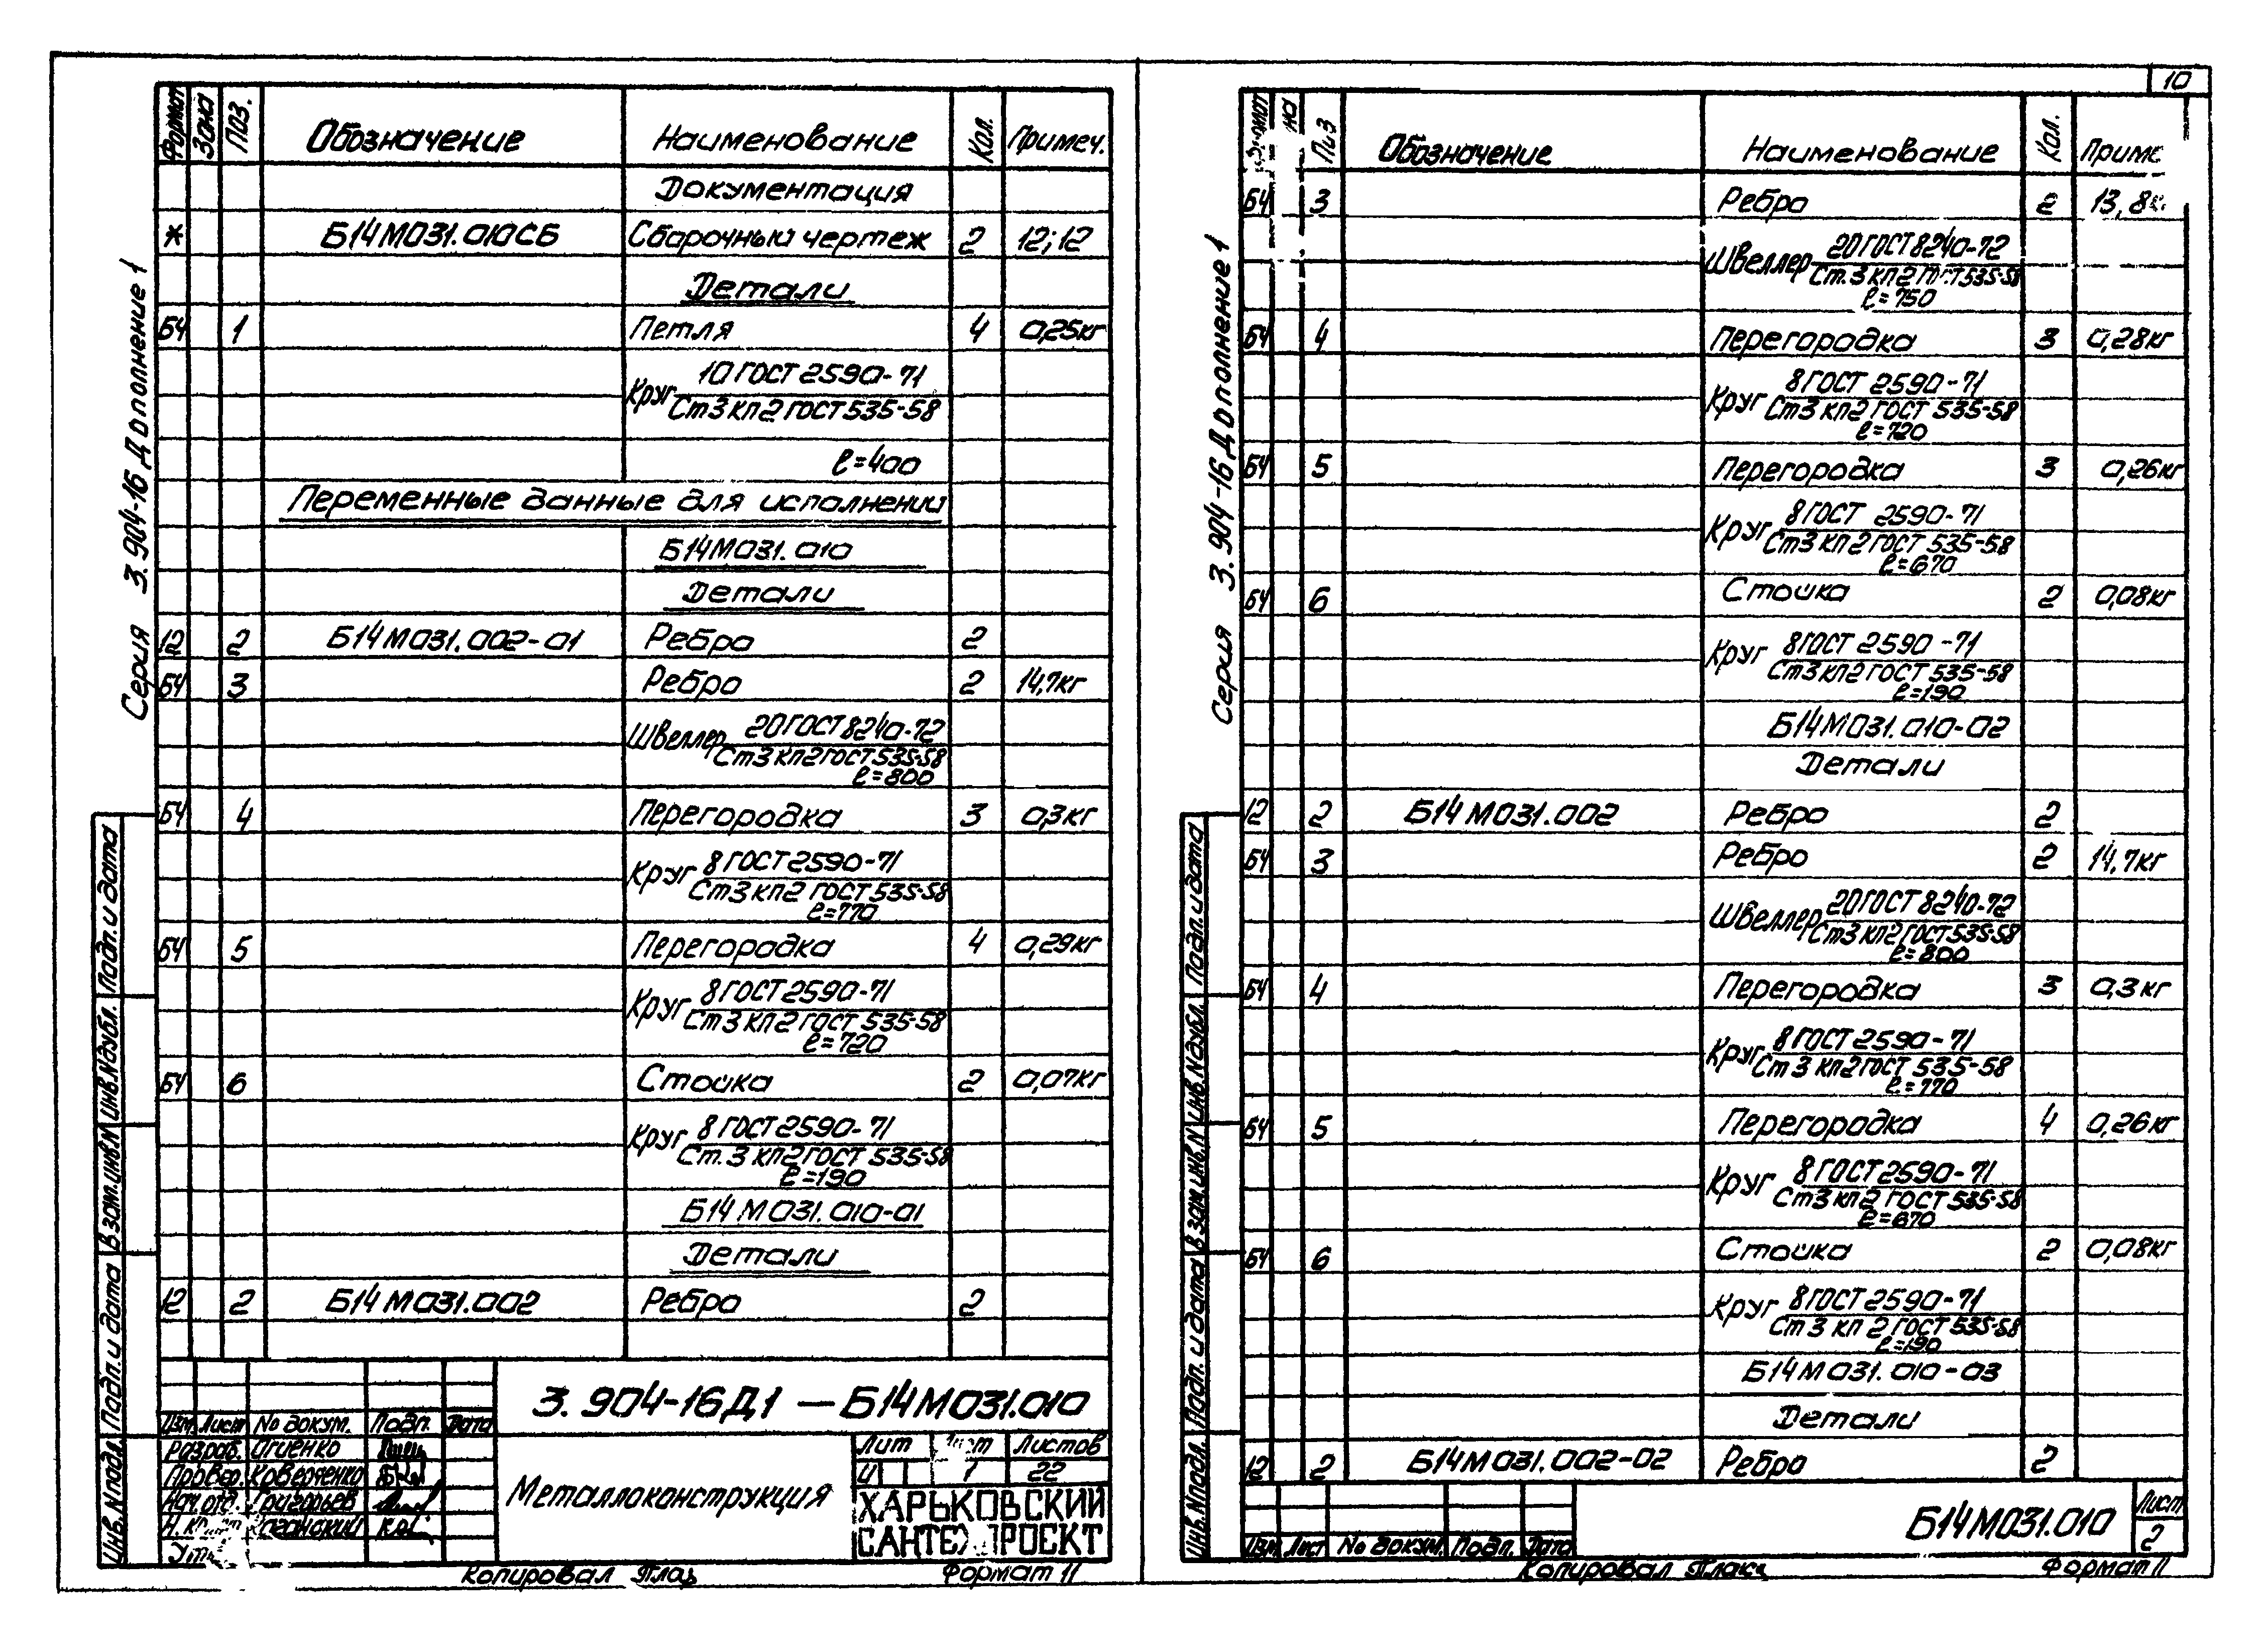 10
Серия 3.904-16 Дополнение 1
Формат Зона Поз. Обозначение Наименование Кол. Примеч.
Документация
* Б14М031.010СБ Сборочный чертеж 2 12;12
Детали
БЧ 1 Петля 4 0,25кг
Круг 10 ГОСТ 2590-71
Ст3 кп2 ГОСТ 535-58
ℓ=400
Переменные данные для исполнений
Б14М031.010
Детали
12 2 Б14М031.002-01 Ребро 2
БЧ 3 Ребро 2 14,7кг
Швеллер 20 ГОСТ 8240-72
Ст3 кп2 ГОСТ 535-58
ℓ=800
БЧ 4 Перегородка 3 0,3кг
Круг 8 ГОСТ 2590-71
Ст3 кп2 ГОСТ 535-58
ℓ=770
БЧ 5 Перегородка 4 0,29кг
Круг 8 ГОСТ 2590-71
Ст3 кп2 ГОСТ 535-58
ℓ=720
БЧ 6 Стойка 2 0,07кг
Круг 8 ГОСТ 2590-71
Ст.3 кп2 ГОСТ 535-58
ℓ=190
Б14М031.010-01
Детали
12 2 Б14М031.002 Ребро 2
Инв.Nподл. Подп. и дата Взам.инв.N Инв.Nдубл. Подп. и дата
3.904-16Д1 — Б14М031.010
Изм. Лист № докум. Подп. Дата
Разраб. Огиенко
Провер. Коверченко
Нач.отд. Григорьев
Металлоконструкция
Лит Лист Листов
И 1 22
ХАРЬКОВСКИЙ
САНТЕХПРОЕКТ
Копировал Формат 11
Серия 3.904-16 Дополнение 1
Поз Обозначение Наименование Кол. Приме
БЧ 3 Ребро 2 13,8кг
Швеллер 20 ГОСТ 8240-72
Ст.3 кп2 ГОСТ 535-58
ℓ=750
БЧ 4 Перегородка 3 0,28кг
Круг 8 ГОСТ 2590-71
Ст3 кп2 ГОСТ 535-58
ℓ=720
БЧ 5 Перегородка 3 0,26кг
Круг 8 ГОСТ 2590-71
Ст3 кп2 ГОСТ 535-58
ℓ=670
БЧ 6 Стойка 2 0,08кг
Круг 8 ГОСТ 2590-71
Ст3 кп2 ГОСТ 535-58
ℓ=190
Б14М031.010-02
Детали
12 2 Б14М031.002 Ребро 2
БЧ 3 Ребро 2 14,7кг
Швеллер 20 ГОСТ 8240-72
Ст3 кп2 ГОСТ 535-58
ℓ=800
БЧ 4 Перегородка 3 0,3кг
Круг 8 ГОСТ 2590-71
Ст3 кп2 ГОСТ 535-58
ℓ=770
БЧ 5 Перегородка 4 0,26кг
Круг 8 ГОСТ 2590-71
Ст3 кп2 ГОСТ 535-58
ℓ=670
БЧ 6 Стойка 2 0,08кг
Круг 8 ГОСТ 2590-71
Ст3 кп2 ГОСТ 535-58
ℓ=190
Б14М031.010-03
Детали
12 2 Б14М031.002-02 Ребро 2
Инв.Nподл. Подп. и дата Взам.инв.N Инв.Nдубл. Подп. и дата
Изм Лист № докум. Подп. Дата
Б14М031.010
Лист
2
Копировал Формат 11